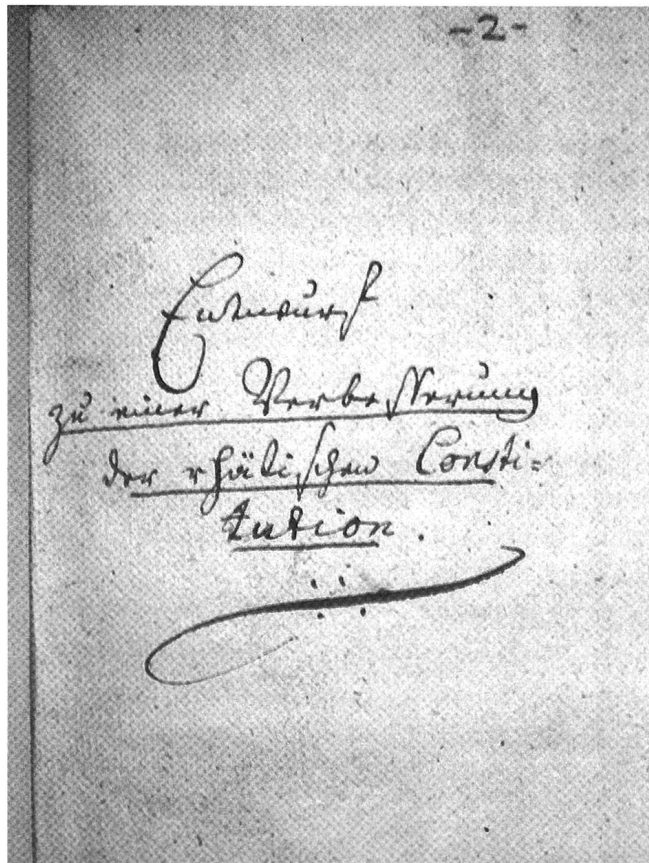 -2-
Entwurf
zu einer Verbesserung
der rhätischen Consti=
tution.